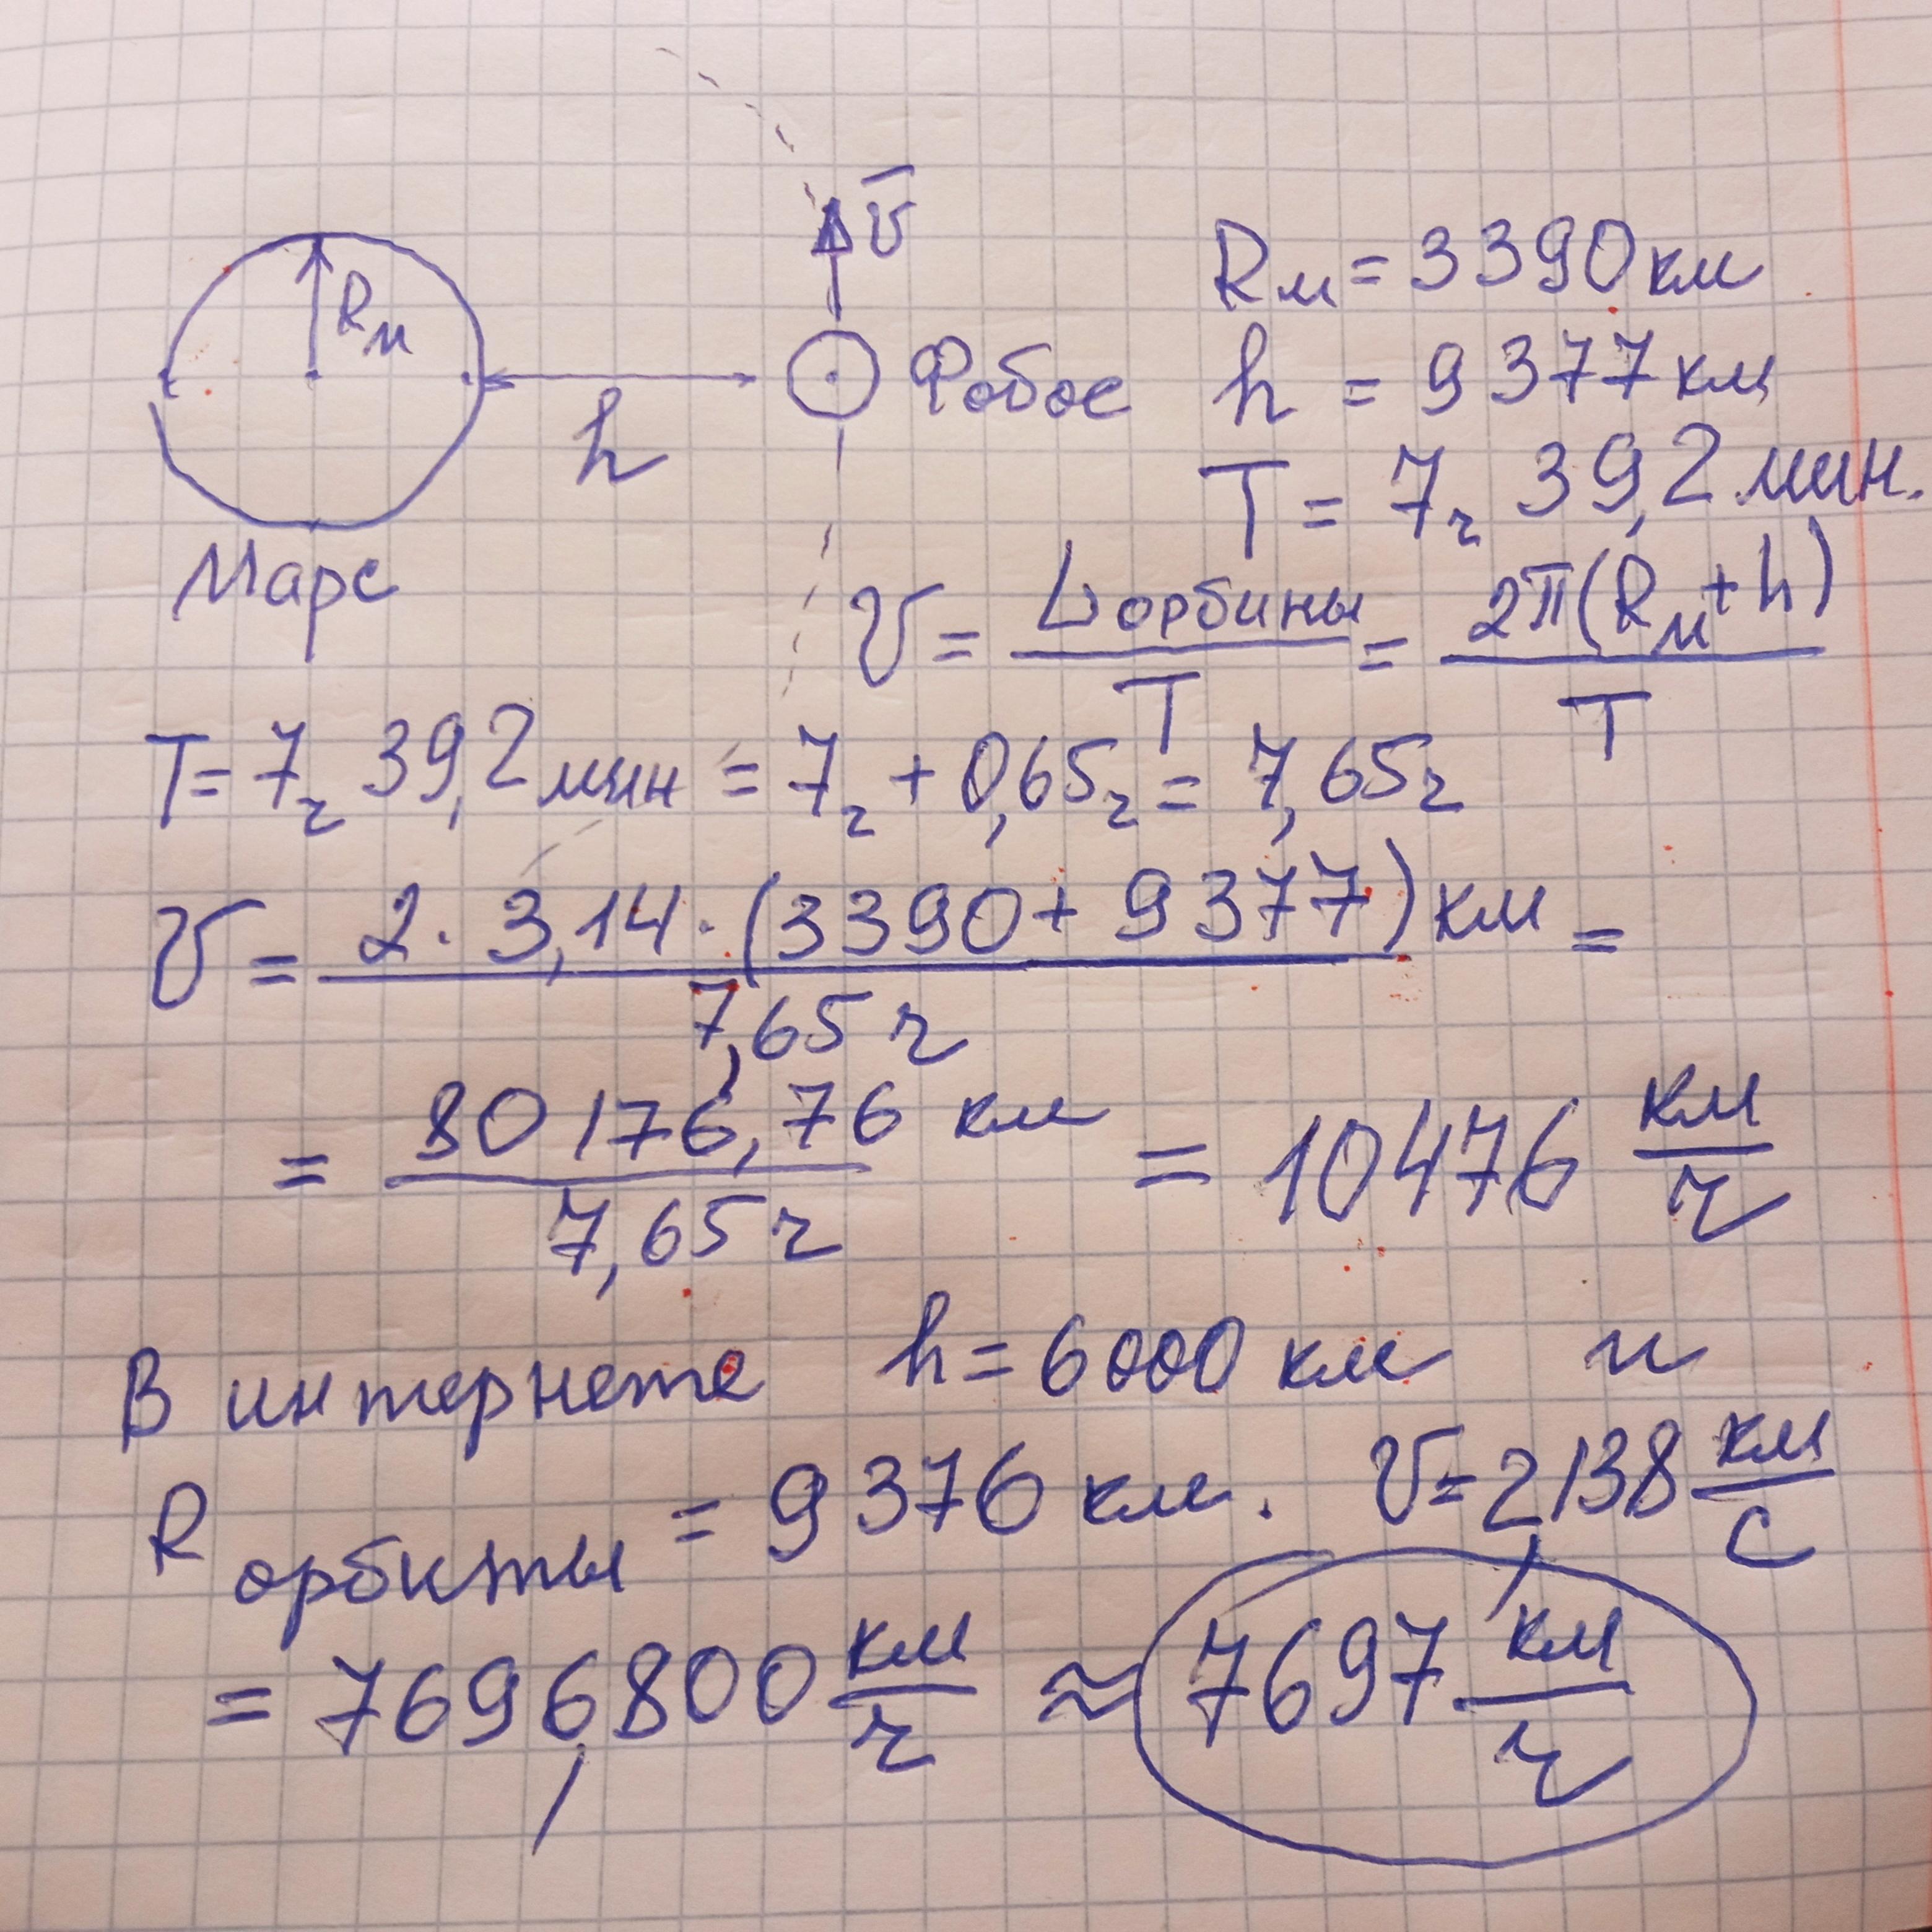 v̅
Rм = 3390 км
Rм
Фобос
h = 9377 км
h
T = 7ч 39,2 мин.
Марс
v = Lорбины / T = 2π(Rм + h) / T
T = 7ч 39,2 мин = 7ч + 0,65ч = 7,65ч
v = 2 · 3,14 · (3390 + 9377) км / 7,65 ч =
= 80176,76 км / 7,65 ч = 10476 км/ч
В интернете h = 6000 км и
R орбиты = 9376 км. v = 2,138 км/с
= 7696,800 км/ч ≈ 7697 км/ч